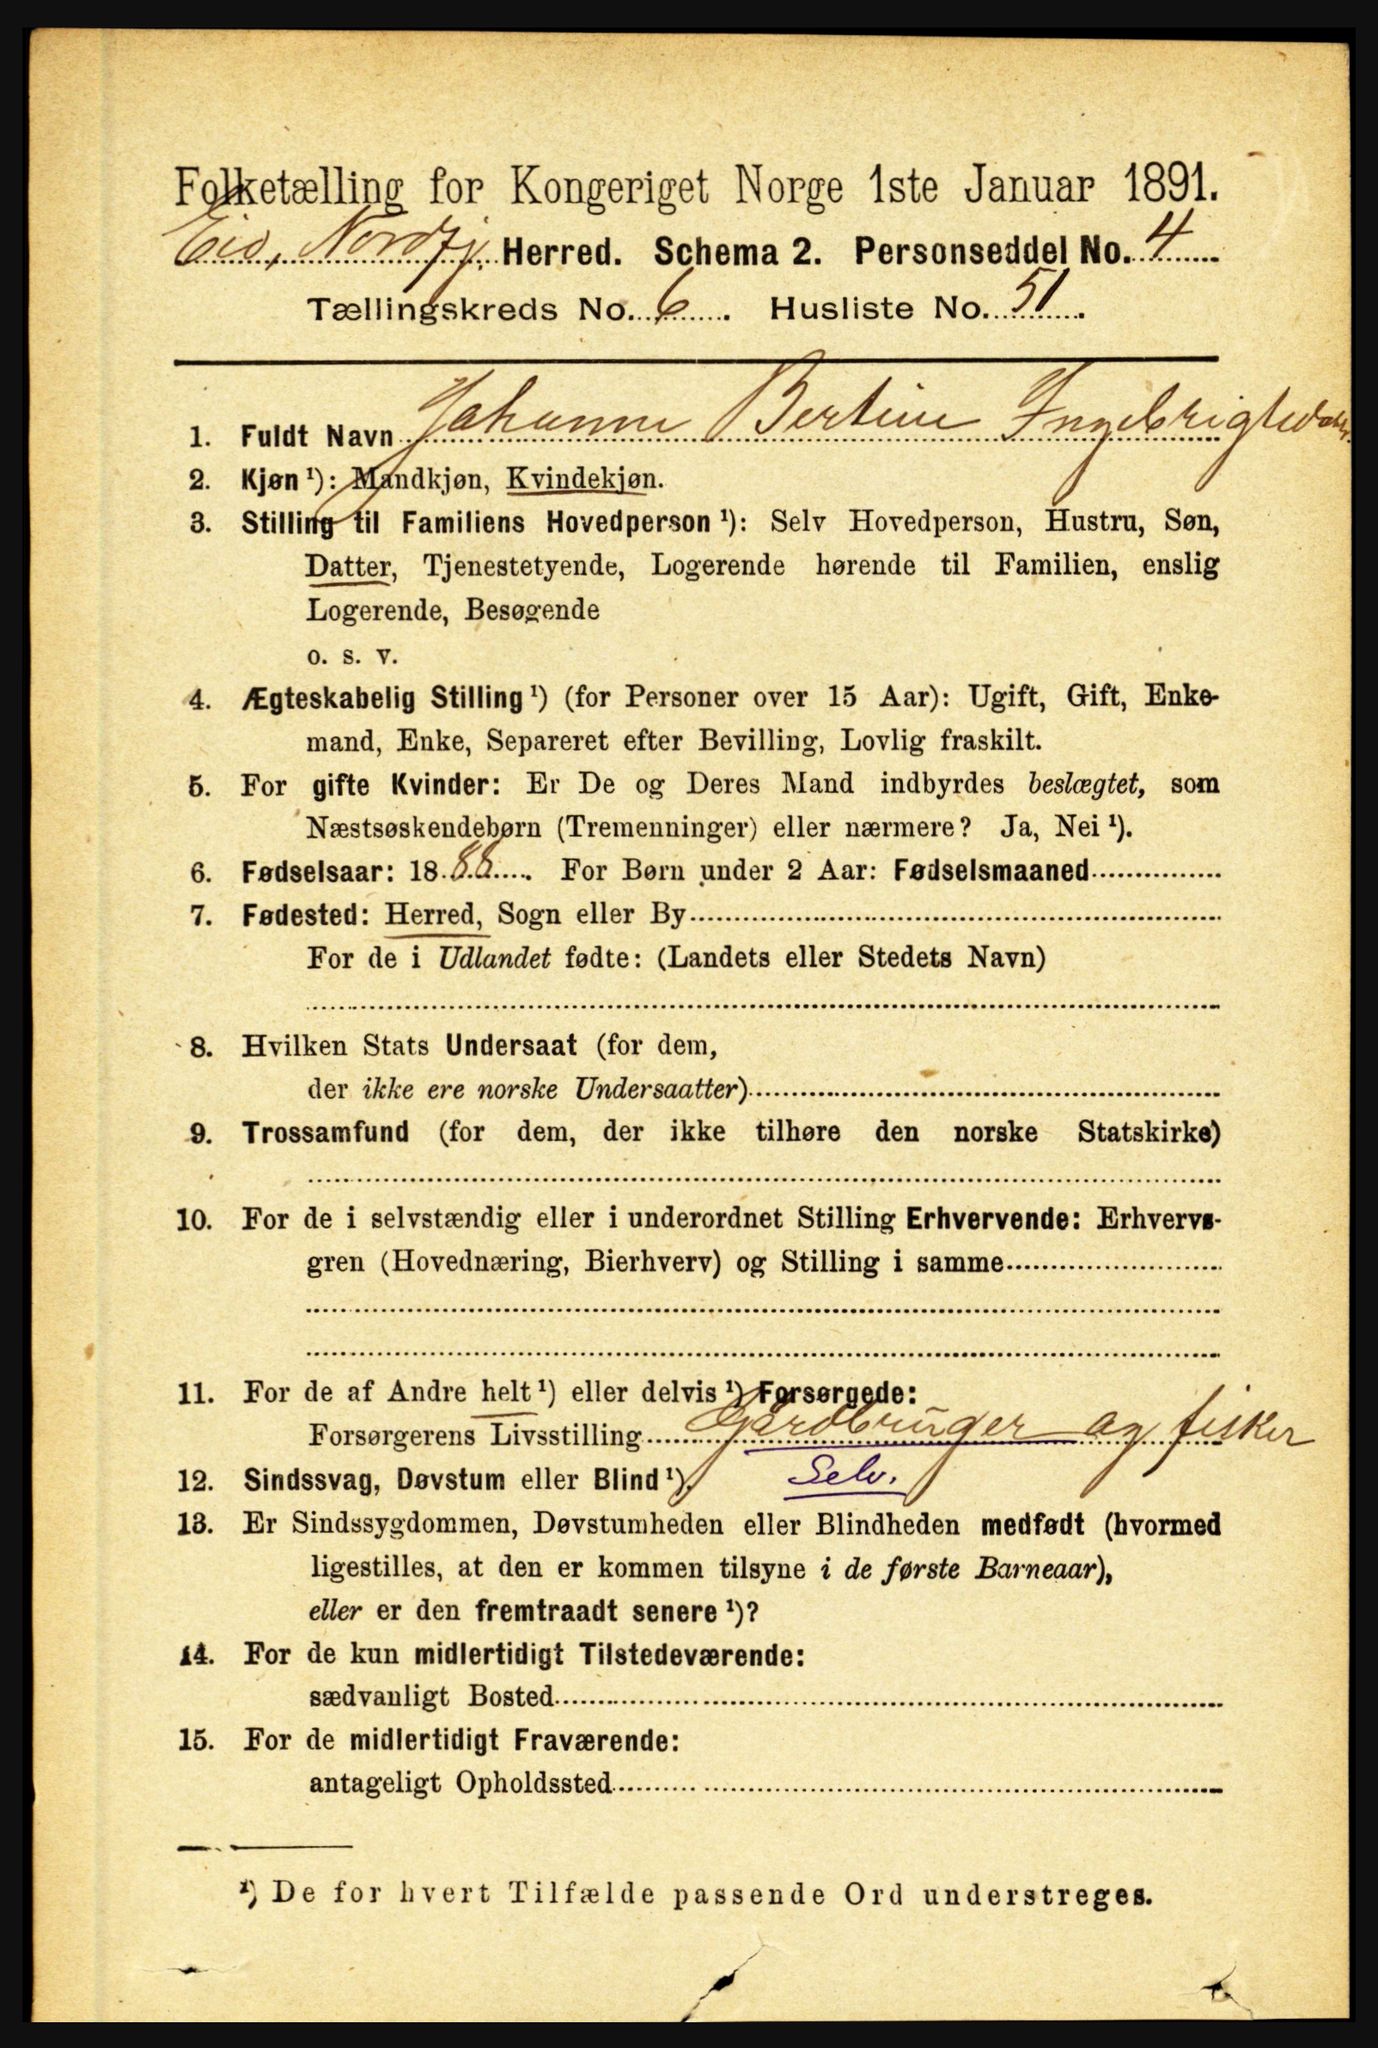 Folketælling for Kongeriget Norge 1ste Januar 1891.
Eid, Nordfj. Herred. Schema 2. Personseddel No. 4
Tællingskreds No. 6. Husliste No. 51.
1. Fuldt Navn Johanne Bertine Ingebrigtsdatr.
2. Kjøn ¹): Mandkjøn, Kvindekjøn.
3. Stilling til Familiens Hovedperson ¹): Selv Hovedperson, Hustru, Søn,
Datter, Tjenestetyende, Logerende hørende til Familien, enslig
Logerende, Besøgende
o. s. v.
4. Ægteskabelig Stilling ¹) (for Personer over 15 Aar): Ugift, Gift, Enke-
mand, Enke, Separeret efter Bevilling, Lovlig fraskilt.
5. For gifte Kvinder: Er De og Deres Mand indbyrdes beslægtet, som
Næstsøskendebørn (Tremenninger) eller nærmere? Ja, Nei ¹).
6. Fødselsaar: 1888. For Børn under 2 Aar: Fødselsmaaned
7. Fødested: Herred, Sogn eller By
For de i Udlandet fødte: (Landets eller Stedets Navn)
8. Hvilken Stats Undersaat (for dem,
der ikke ere norske Undersaatter)
9. Trossamfund (for dem, der ikke tilhøre den norske Statskirke)
10. For de i selvstændig eller i underordnet Stilling Erhvervende: Erhvervs-
gren (Hovednæring, Bierhverv) og Stilling i samme
11. For de af Andre helt ¹) eller delvis ¹) Forsørgede:
Forsørgerens Livsstilling Gårdbruger og fisker
12. Sindssvag, Døvstum eller Blind ¹). Selv.
13. Er Sindssygdommen, Døvstumheden eller Blindheden medfødt (hvormed
ligestilles, at den er kommen tilsyne i de første Barneaar),
eller er den fremtraadt senere ¹)?
14. For de kun midlertidigt Tilstedeværende:
sædvanligt Bosted
15. For de midlertidigt Fraværende:
antageligt Opholdssted
¹) De for hvert Tilfælde passende Ord understreges.